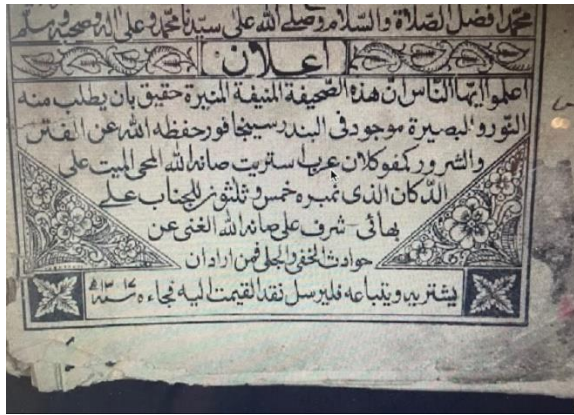 محمد افضل الصلاة والسلام وصلى الله على سيدنا محمد وعلى اله وصحبه وسلم
اعلان
اعلموا ايها الناس ان هذه الصحيفة المنيفة المنيرة حقيق بان يطلب منه
النور والبصيرة موجود فى البندر سينجافور حفظه الله عن الفتن
والشرور كمفوكلان عرب استريت صانه الله المحى المميت على
الدكان الذى نمبره خمس وثلثون للجناب على
بهائى - شرف على صانه الله الغنى عن
حوادث الخفى والجلى فمن اراد ان
يشتريه ويتباعه فليرسل نقد القيمت اليه فجاءه سنة ١٣١٧